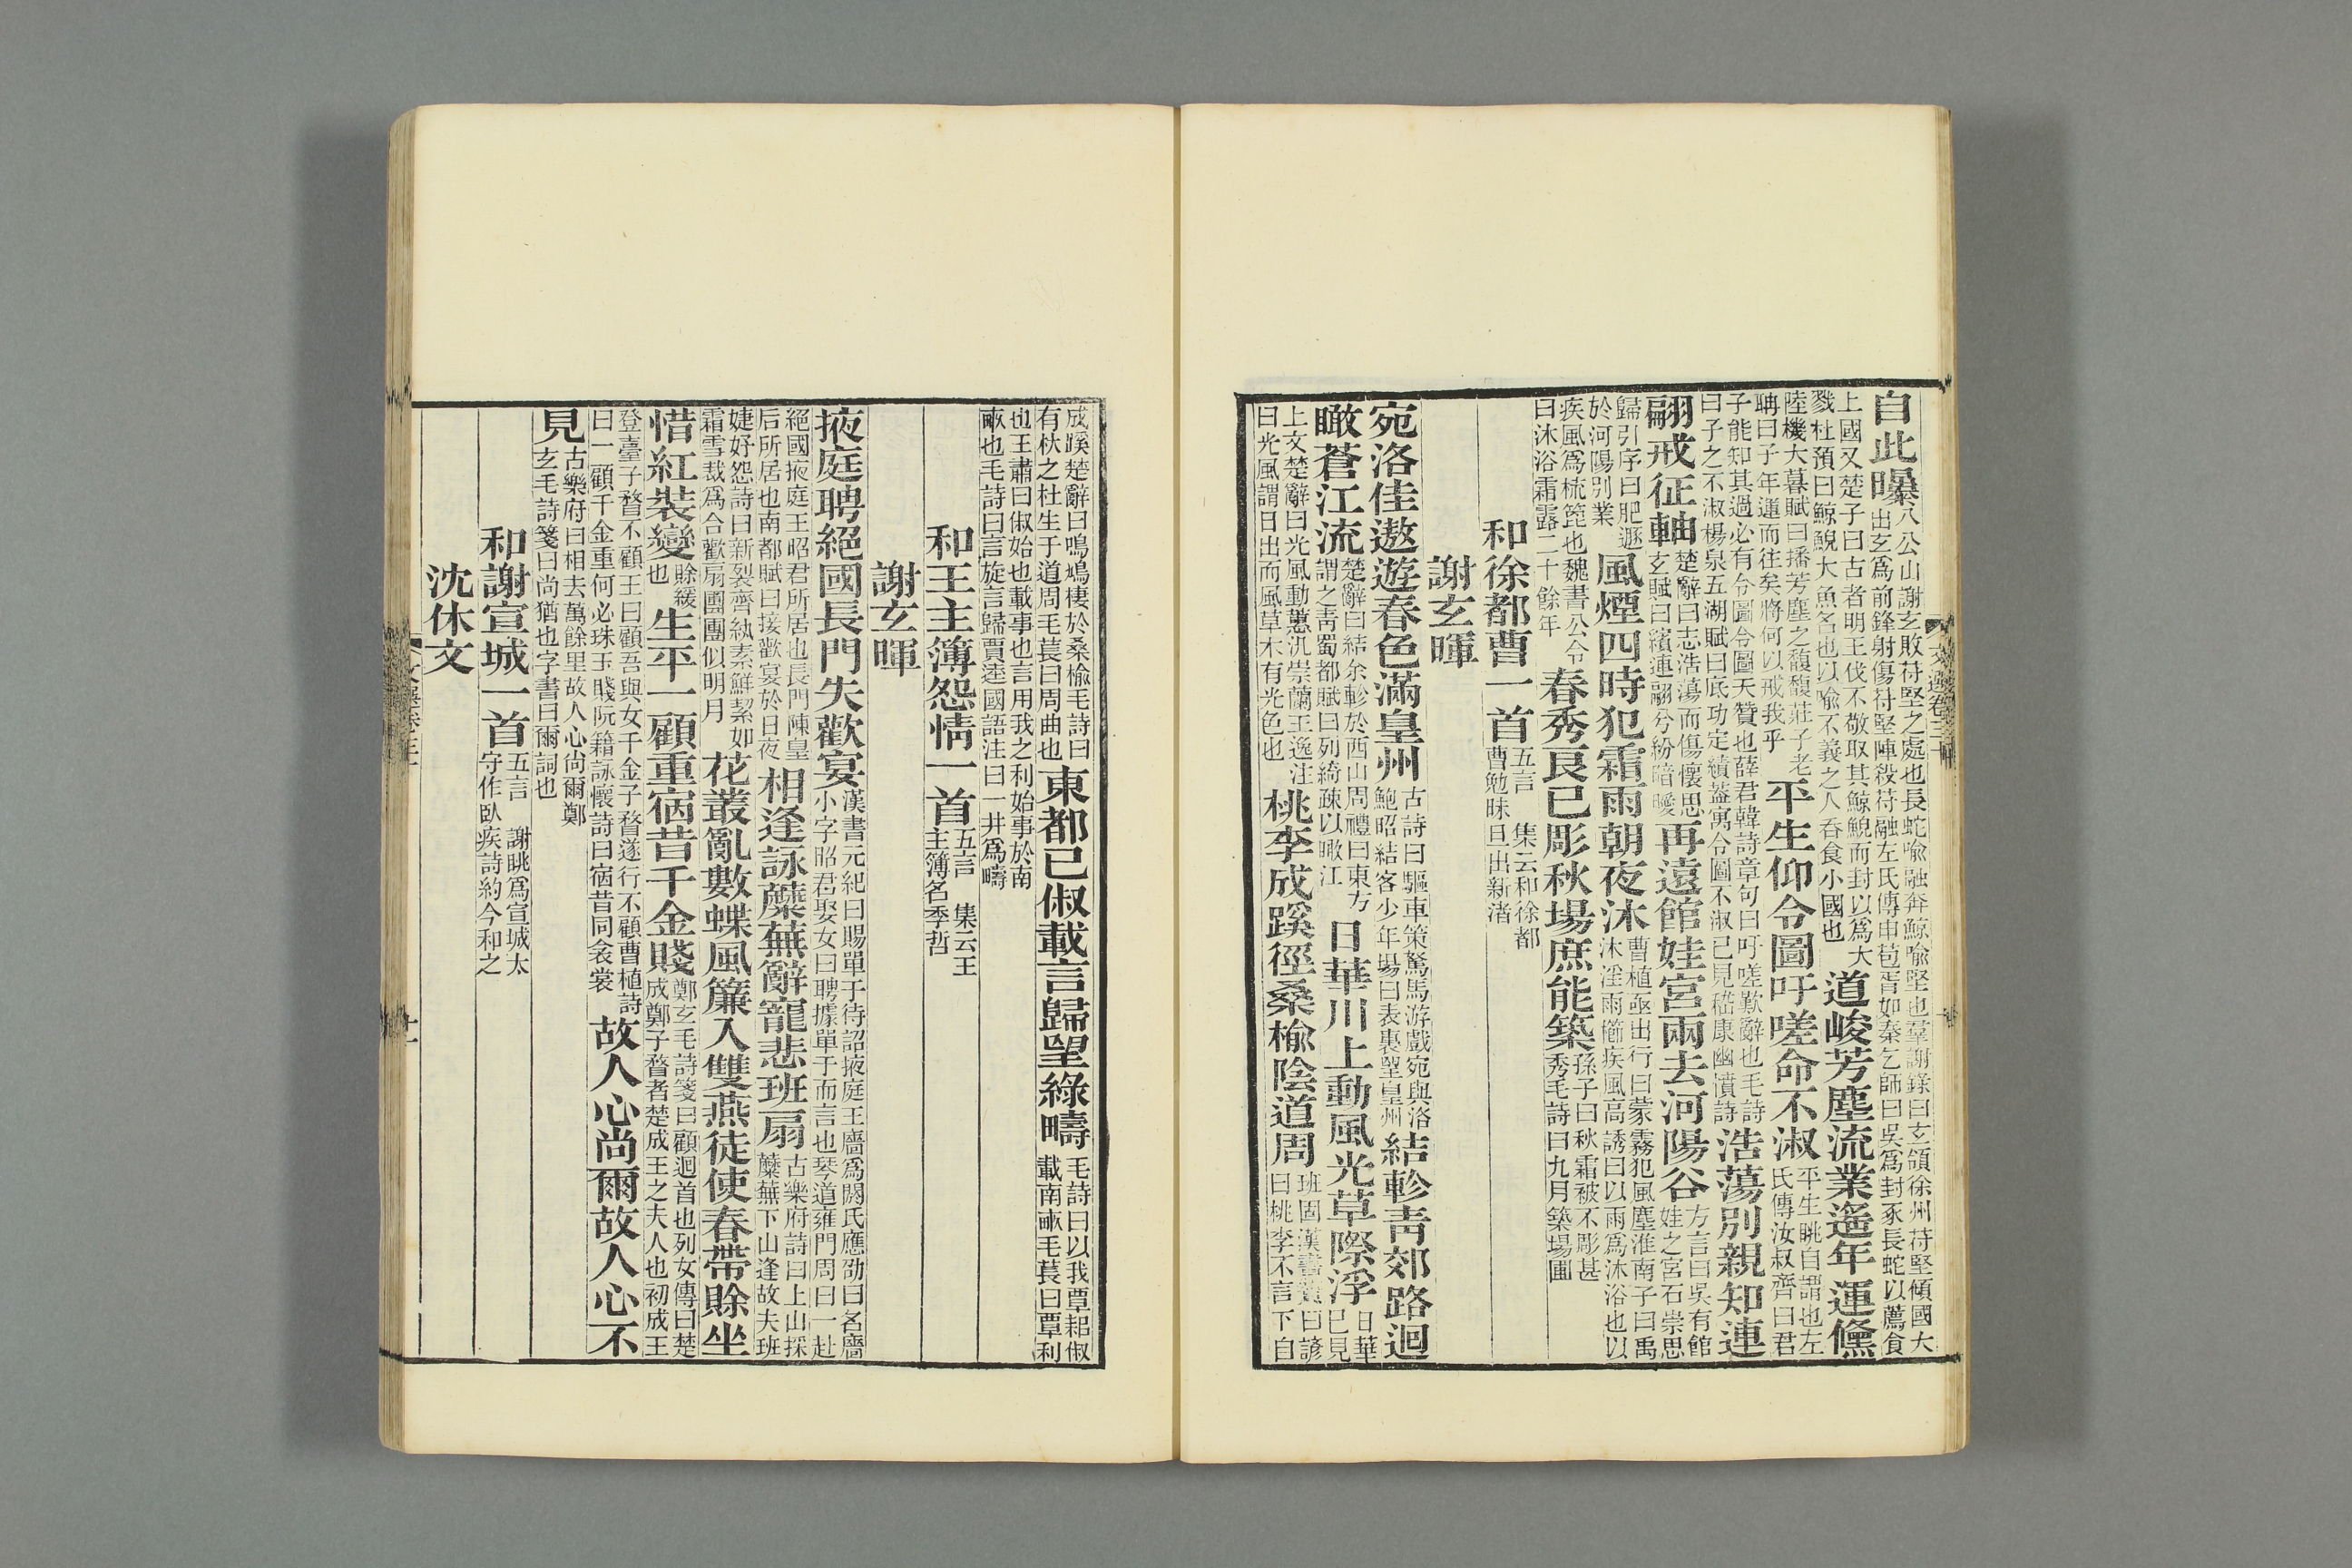 自此曝八公山謝玄敗苻堅之處也長蛇喻融奔鯨喻堅也羣謝錄曰玄領徐州苻堅傾國大
出玄爲前鋒射傷苻堅陣殺苻融左氏傳申苞胥如秦乞師曰吳爲封豕長蛇以薦食
上國又楚子曰古者明王伐不敬取其鯨鯢而封以爲大
戮杜預曰鯨鯢大魚名也以喻不義之人吞食小國也道峻芳塵流業遙年運儵
陸機大暮賦曰播芳塵之馥馥莊子老
聃曰子年運而往矣將何以戒我乎平生仰令圖吁嗟命不淑平生眺自謂也左
氏傳汝叔齊曰君
子能知其過必有令圖令圖天贊也薛君韓詩章句曰吁嗟歎辭也毛詩
曰子之不淑楊泉五湖賦曰底功定績蓋寓令圖不淑已見嵇康幽憤詩浩蕩別親知連
翩戒征軸楚辭曰志浩蕩而傷懷思
玄賦曰繽連翩兮紛暗曖再遠館娃宮兩去河陽谷方言曰吳有館
娃之宮石崇思
歸引序曰肥遯
於河陽別業風煙四時犯霜雨朝夜沐曹植亟出行曰蒙霧犯風塵淮南子曰禹
沐淫雨櫛疾風高誘曰以雨爲沐浴也以
疾風爲梳篦也魏書公令
曰沐浴霜露二十餘年春秀良已彫秋場庶能築孫子曰秋霜被不彫甚
秀毛詩曰九月築場圃
和徐都曹一首五言　集云和徐都
曹勉昧旦出新渚
謝玄暉
宛洛佳遨遊春色滿皇州古詩曰驅車策駑馬游戲宛與洛
鮑昭結客少年場曰表裏望皇州結軫青郊路迴
瞰蒼江流楚辭曰結余軫於西山周禮曰東方
謂之青蜀都賦曰列綺疎以瞰江日華川上動風光草際浮日華
已見
上文楚辭曰光風動蕙汎崇蘭王逸注
曰光風謂日出而風草木有光色也桃李成蹊徑桑楡陰道周班固漢書贊曰諺
曰桃李不言下自
成蹊楚辭曰鳴鳩棲於桑楡毛詩曰
有杕之杜生于道周毛萇曰周曲也東都已俶載言歸望綠疇毛詩曰以我覃耜俶
載南畝毛萇曰覃利
也王肅曰俶始也載事也言用我之利始事於南
畝也毛詩曰言旋言歸賈逵國語注曰一井爲疇
和王主簿怨情一首五言　集云王
主簿名季哲
謝玄暉
掖庭聘絕國長門失歡宴漢書元紀曰賜單于待詔掖庭王嬙爲閼氏應劭曰名嬙
小字昭君娶女曰聘據單于而言也琴道雍門周曰一赴
絕國掖庭王昭君所居也長門陳皇
后所居也南都賦曰接歡宴於日夜相逢詠蘪蕪辭寵悲班扇古樂府詩曰上山採
蘪蕪下山逢故夫班
婕妤怨詩曰新裂齊紈素鮮絜如
霜雪裁爲合歡扇團團似明月花叢亂數蝶風簾入雙燕徒使春帶賒坐
惜紅裝變賒緩
也生平一顧重宿昔千金賤鄭玄毛詩箋曰顧迴首也列女傳曰楚
成鄭子瞀者楚成王之夫人也初成王
登臺子瞀不顧王曰顧吾與女千金子瞀遂行不顧曹植詩
曰一顧千金重何必珠玉賤阮籍詠懷詩曰宿昔同衾裳故人心尚爾故人心不
見古樂府曰相去萬餘里故人心尚爾鄭
玄毛詩箋曰尚猶也字書曰爾詞也
和謝宣城一首五言　謝眺爲宣城太
守作臥疾詩約今和之
沈休文